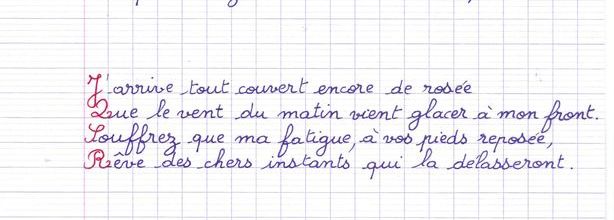 J'arrive tout couvert encore de rosée
Que le vent du matin vient glacer à mon front.
Souffrez que ma fatigue, à vos pieds reposée,
Rêve des chers instants qui la délasseront.